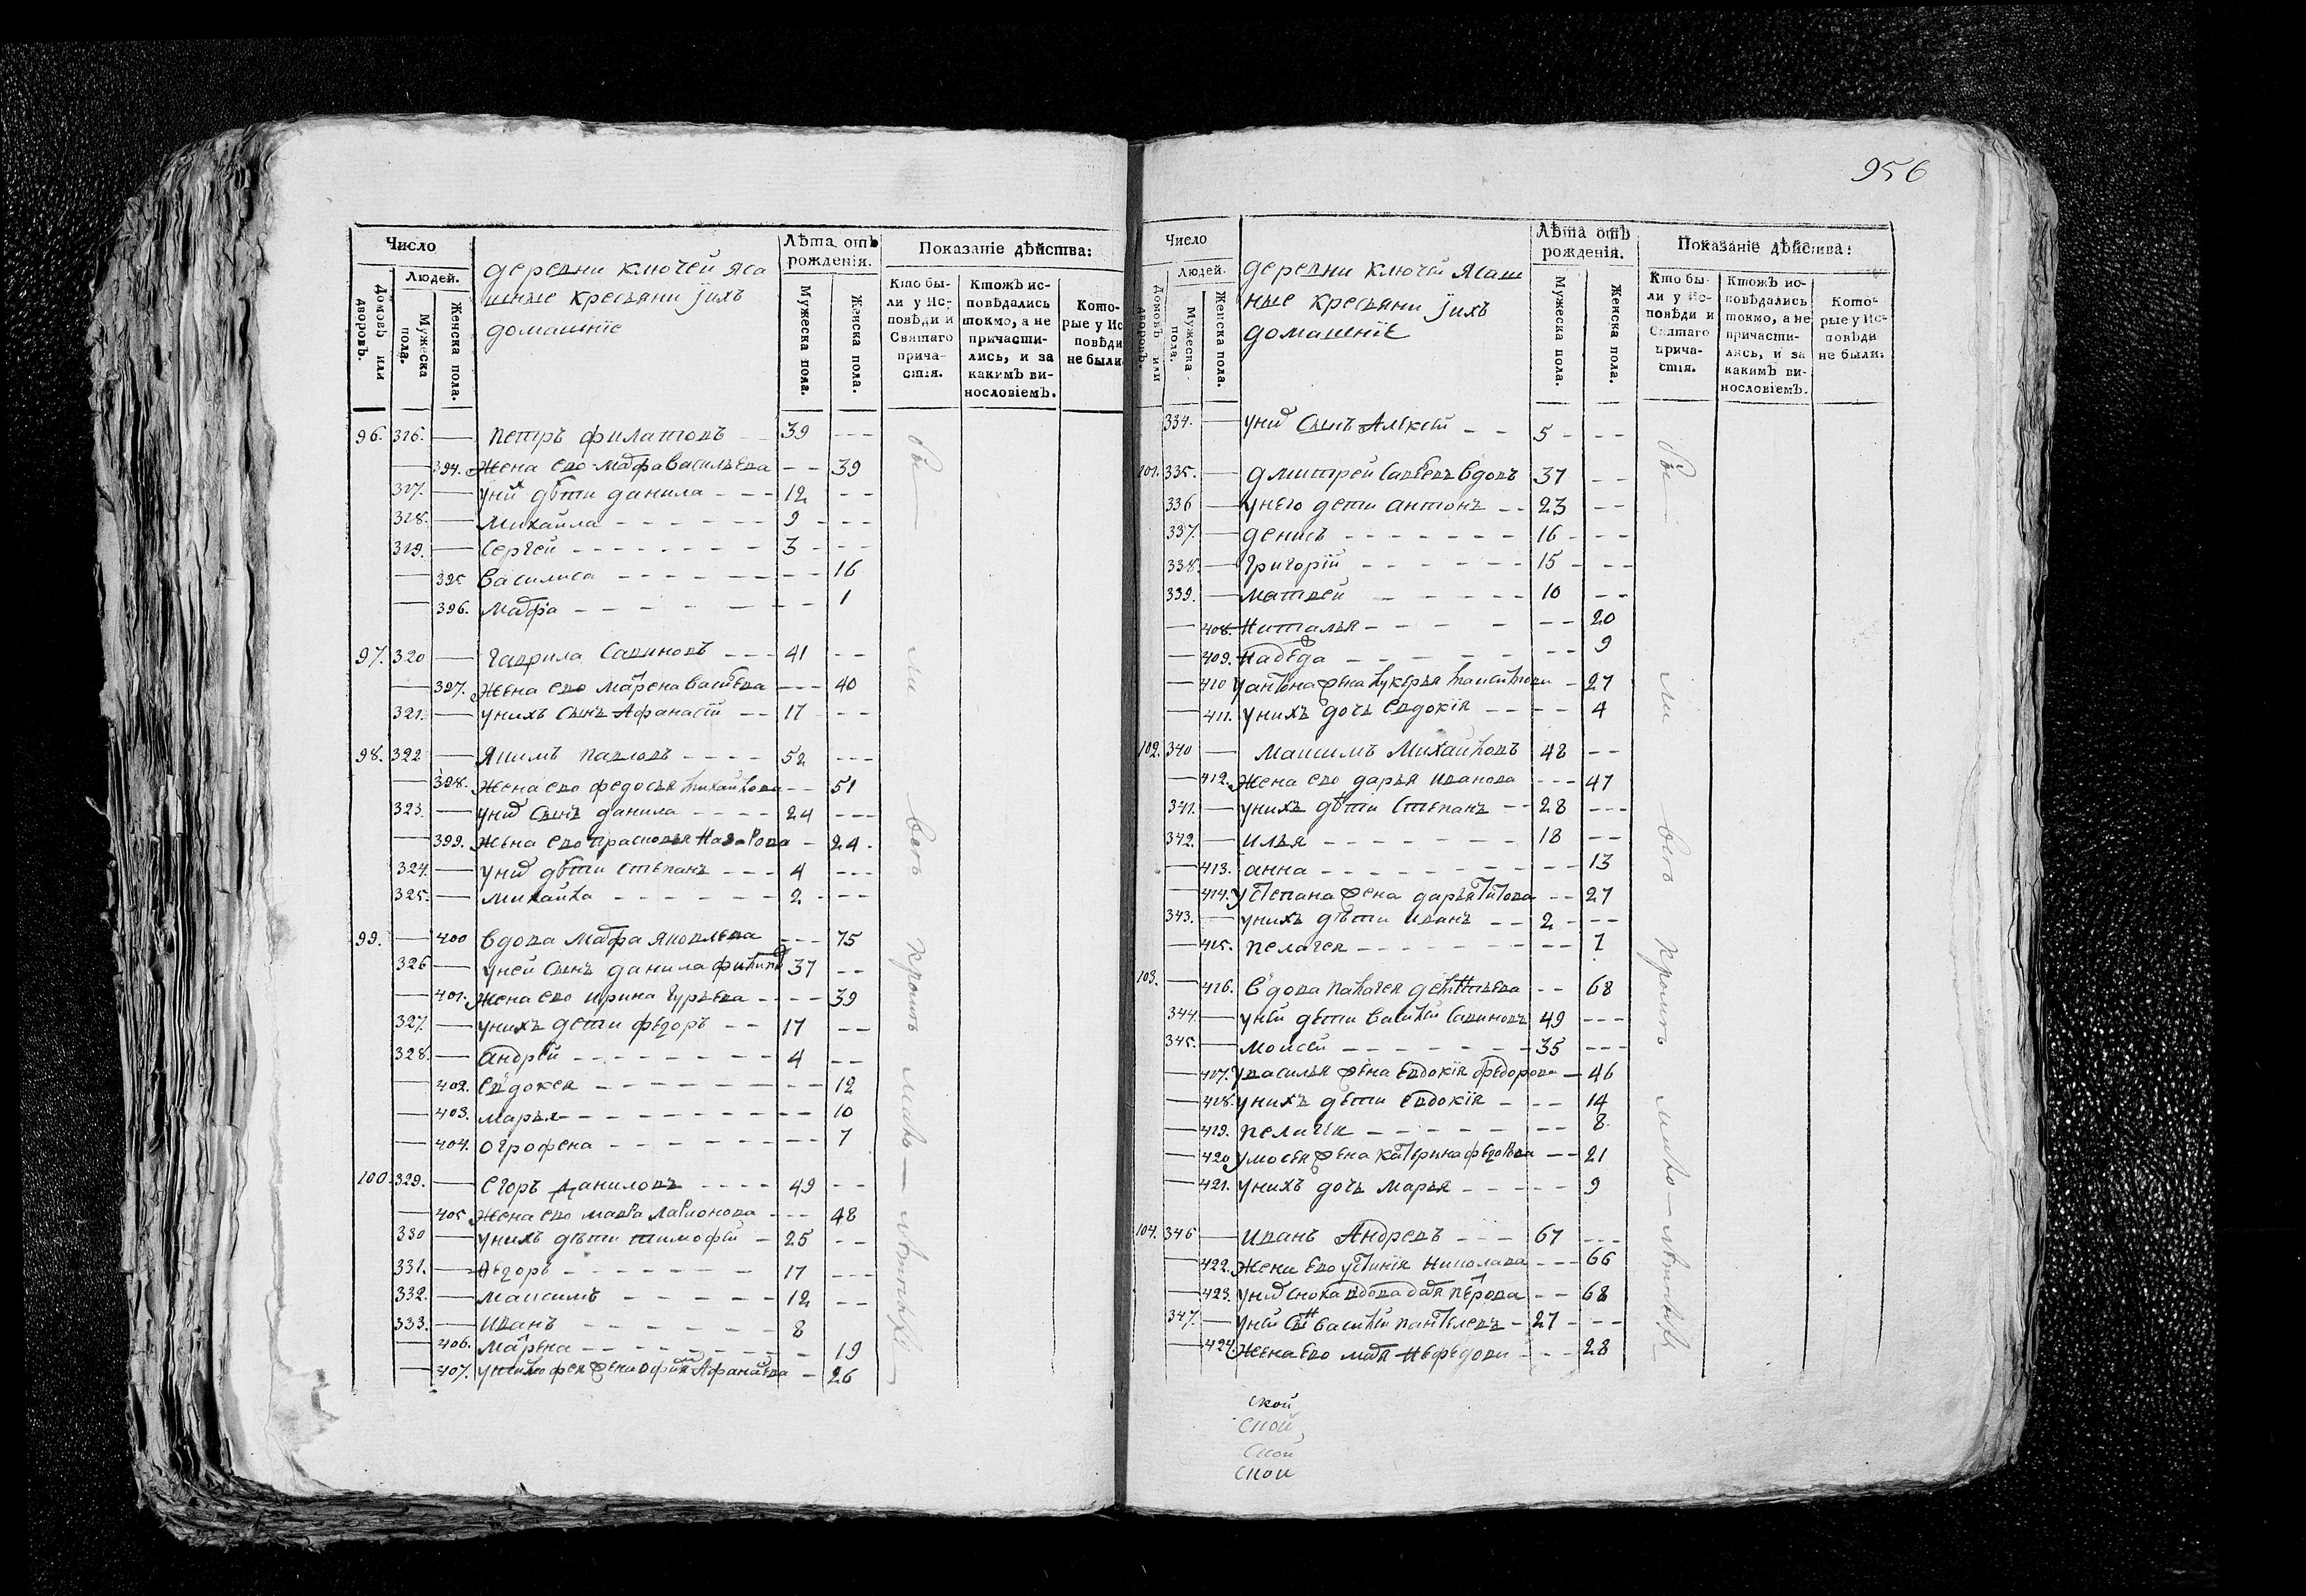 Число
Людей.
Домовъ или дворовъ.
Мужеска пола.
Женска пола.
деревни ключей яса
шные кресьяни јихъ
домашніе
Лѣта отъ рожденія.
Мужеска пола.
Женска пола.
Показаніе дѣйства:
Кто были у Исповѣди и Святаго причастія.
Ктожъ исповѣдались токмо, а не причастились, и за какимъ винословіемъ.
Которые у Ис повѣди не были
96. 316. — петръ филатовъ — 39 ---
— 394. Жена ево марфа васильева -- 39
317. — у них дѣти данила --- 12 ---
318. — михайла ------ 9 ----
319. — Сергей ------- 3 ----
— 395 василиса ------- 16
— 396. марфа ------- 1
97. 320 — гаврила Савиновъ --- 41 --
— 397. жена ево марена васиева --- 40
321. — у нихъ сынъ Афанасей -- 17 ---
98. 322 — Якимъ павловъ ---- 52 ---
— 398. жена ево федосья михайлова -- 51
323. — у них Сынъ данила ---- 24 ---
— 399. жена ево прасковья Назарова - 24 -
324. — у них дѣти степанъ --- 4 ---
325. — михайла ------ 2 ----
99. — 400 вдова марфа яковлева --- 75
326 — у ней Сынъ данила филипов 37 --
— 401. жена ево ирина гурьева ---- 39
327. — у нихъ дети федоръ -- 17 --
328. — андрей ------- 4 --
— 402. евдокея -------- 12
— 403. марья --------- 10
— 404. огрофена ------- 7
100. 329. — Егоръ Даниловъ ---- 49 --
— 405 жена ево мавра лаrионова --- 48
330 — у нихъ дѣти тимофей - 25 --
331. — федоръ ------- 17 ---
332. — максимъ ----- 12 --
333. — иванъ ------ 8
— 406. марена ------ 19
— 407. у тимофея жена офимя Афанасева - 26
бы—
ли
вси
кромѣ
мало—лѣтнихъ
956
Число
Людей.
Домовъ или дворовъ.
Мужеска пола.
Женска пола.
деревни ключей ясаш
ные кресьяни јихъ
домашніе
Лѣта отъ рожденія.
Мужеска пола.
Женска пола.
Показаніе дѣйства:
Кто были у Исповѣди и Святаго причастія.
Ктожъ исповѣдались токмо, а не причастились, и за какимъ винословіемъ.
Которые у Исповѣди не были.
334. — у них Сынъ Алексей -- 5 ----
101. 335. — дмитрей Савеевъ вдовъ 37 --
336 — у него дети антонъ -- 23 --
337. — денисъ ------- 16 ----
338. — григорій ------ 15 ---
339. — матвей ----- 10 --
— 408. Наталья ------ 20
— 409. Надежда ------ 9
— 410 у антона жена лукерья - 27
— 411. у нихъ дочь Евдокія ---- 4
102. 340 — максимъ Михайловъ 48 --
— 412. Жена ево дарья иванова --- 47
341. — у нихъ дѣти Степанъ -- 28 ---
342. — илья ------- 18 --
— 413. анна -------- 13
— 414. у степана жена дарья титова -- 27
343. — у нихъ дѣти иванъ -- 2 ---
— 415. пелагея -------- 7
103. — 416. вдова палагея -- 68
344. — у ней дѣти василей савиновъ 49 ---
345. — моисей ------- 35 ---
— 417. у василья жена евдокія федорова — 46
— 418. у нихъ дѣти евдокія --- 14
— 419. пелагея ------- 8
— 420 у мосея жена катерина федорова -- 21
— 421. у нихъ дочь марья ----- 9
104. 346 — иванъ Андревъ --- 67 ---
— 422. жена ево устинія николава --- 66
— 423. у них сноха вдова даря петрова -- 68
347. — у ней сын василей пантелевъ - 27 ---
— 424. жена ево маря нефедова --- 28
бы—
ли
вси
кромѣ
мало—лѣтнихъ
ской
ской
ской
ской